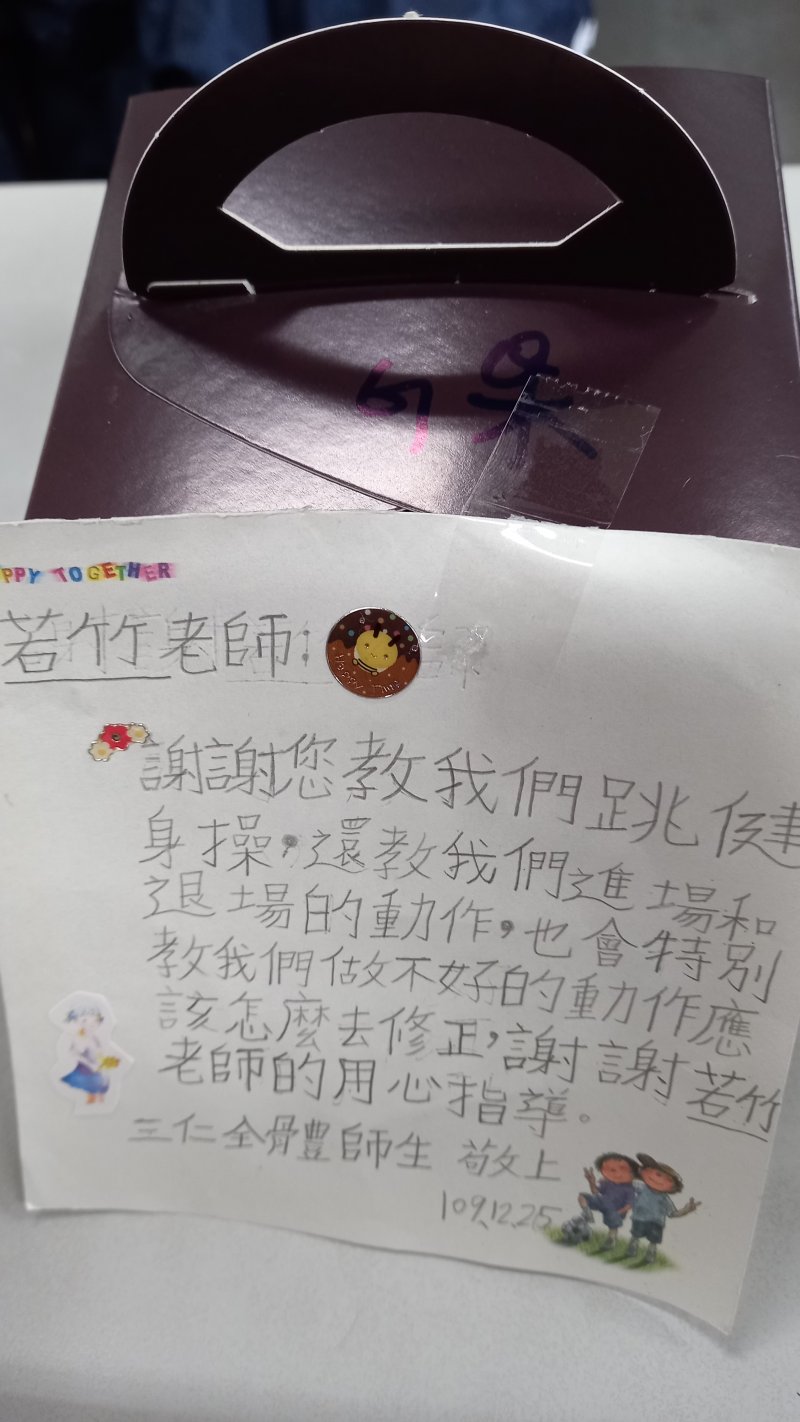 PPY TOGETHER
若竹老師：
Happy Time
謝謝您教我們跳健
身操，還教我們進場和
退場的動作，也會特別
教我們做不好的動作應
該怎麼去修正，謝謝若竹
老師的用心指導。
三仁全體師生 敬上
109.12.25